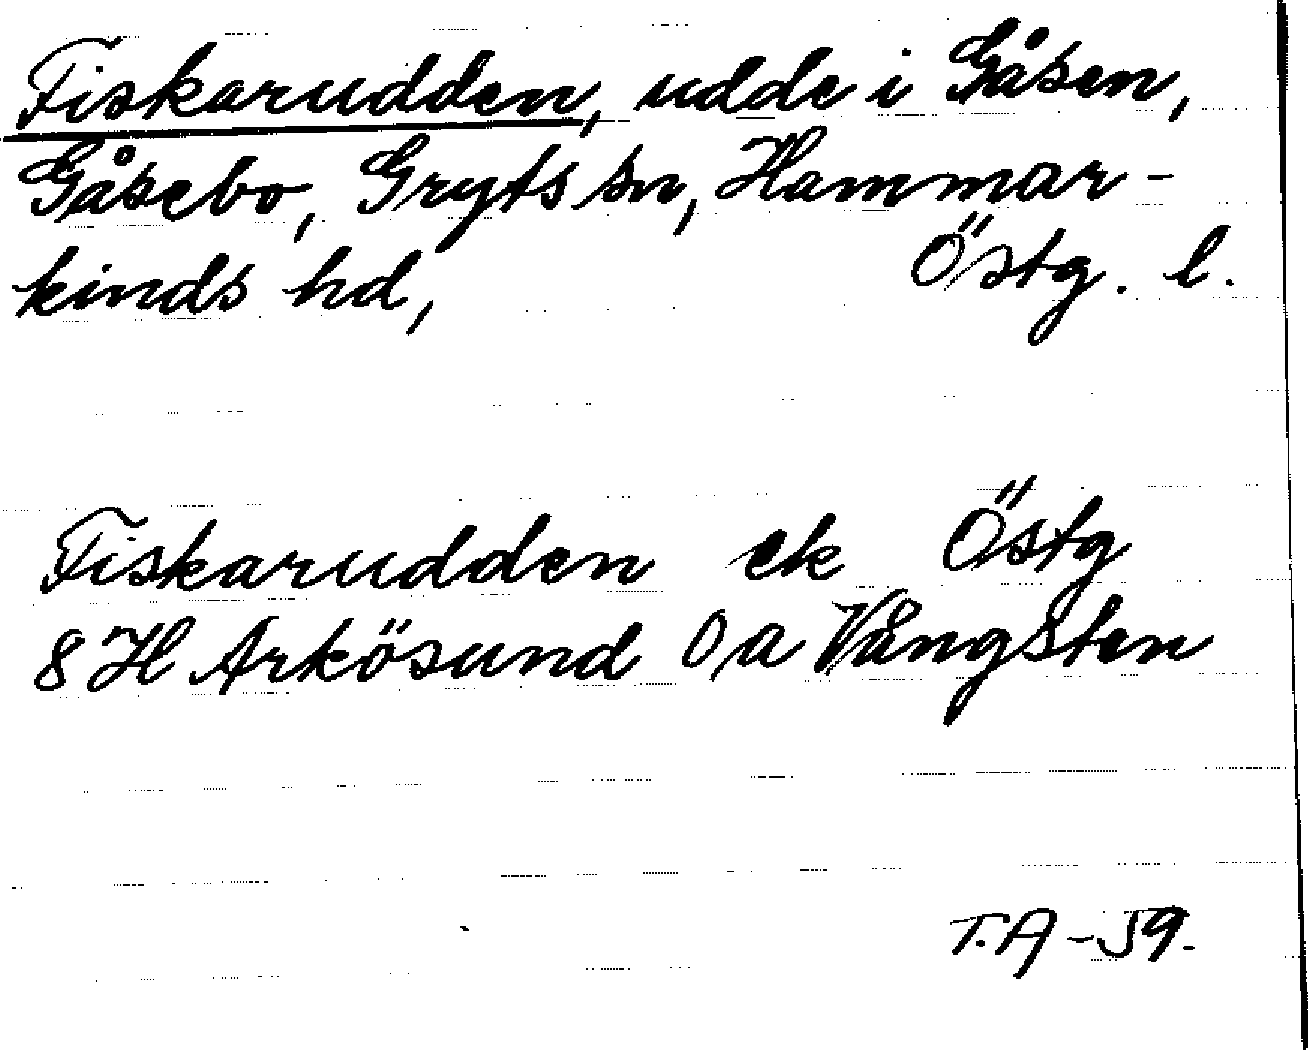 Fiskarudden, udde i Gåsen,
Gåsebo, Gryts sn, Hammar-
kinds hd, Östg. l.
Fiskarudden ek Östg
8 H Arkösund O a Vångsten
T.A -59.